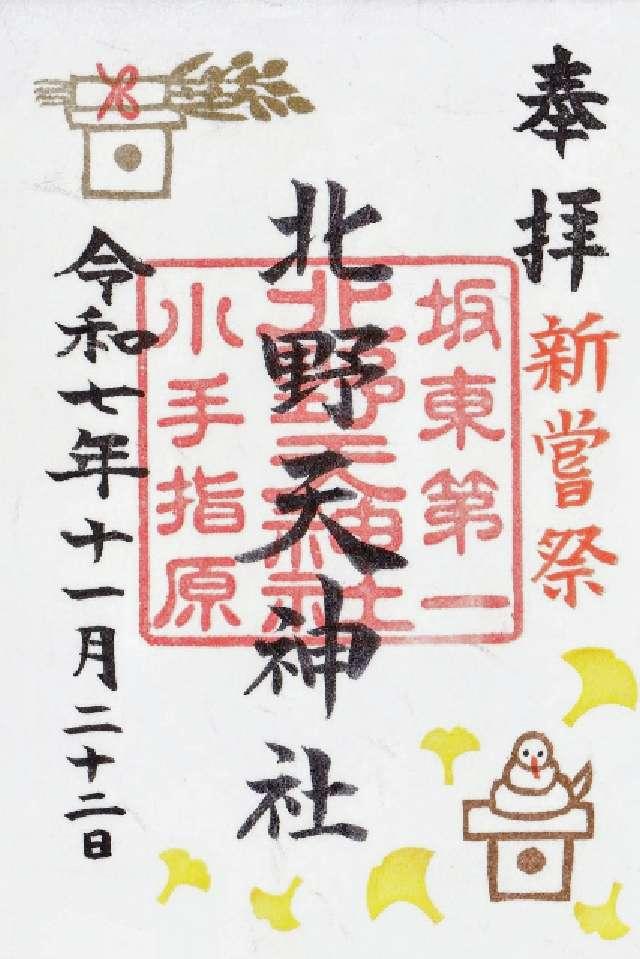 奉拝
新嘗祭
坂東第一
北野天神社
小手指原
北野天神社
令和七年十一月二十二日